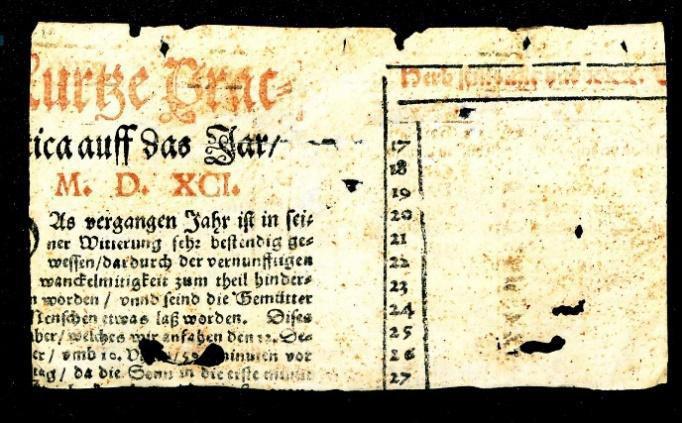 Kurtze Prac-
tica auff das Jar/
M. D. XCI.
DAs vergangen Jahr ist in sei-
ner Witterung sehr bestendig ge-
wessen/dardurch der vernunfftigen
wanckelmitigkeit zum theil hinder-
n worden / vnnd seind die Gemütter
Menschen etwas laß worden. Dises
aber/welches wir anfahen den 22. De-
er / vmb 10. minuten vor
tag / da die Sonn in die erste minut
17
18
19
20
21
22
23
24
25
26
27